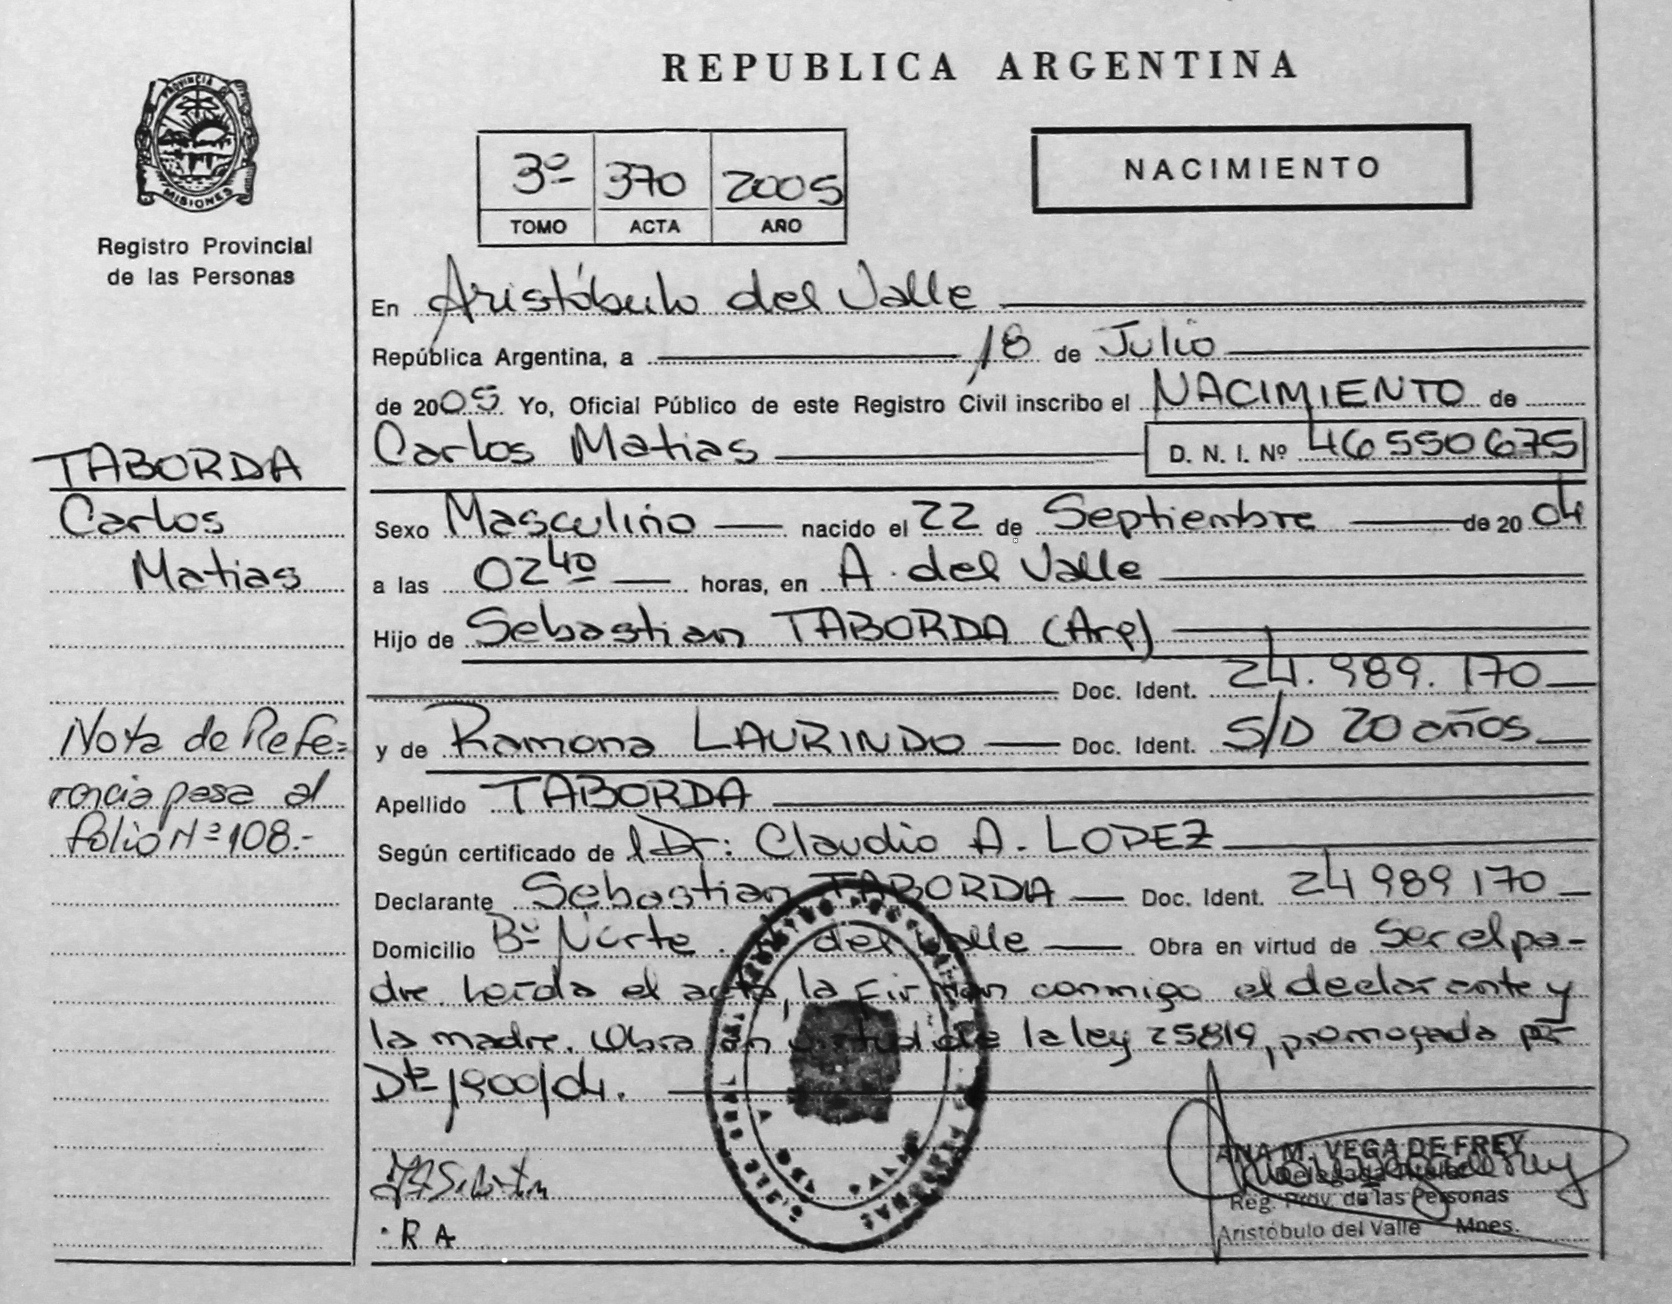 REPUBLICA ARGENTINA
PROVINCIA DE
MISIONES
Registro Provincial
de las Personas
3º 370 2005
TOMO ACTA AÑO
NACIMIENTO
En Aristóbulo del Valle
República Argentina, a 18 de Julio
de 2005. Yo, Oficial Público de este Registro Civil inscribo el NACIMIENTO de
Carlos Matias D. N. I. Nº 46550675
Sexo Masculino nacido el 22 de Septiembre de 2004
a las 02 40 horas, en A. del Valle
Hijo de Sebastian TABORDA (Arg)
Doc. Ident. 24.989.170
y de Ramona LAURINDO Doc. Ident. S/D 20 años
Apellido TABORDA
Según certificado de l Dr: Claudio A. LOPEZ
Declarante Sebastian TABORDA Doc. Ident. 24989170
Domicilio Bº Norte. del Valle Obra en virtud de Ser el pa-
dre. Leída el acta, la firman conmigo el declarante y
la madre. Obra en virtud de la ley 25819, prorrogada por
Dto 1900/04.
TABORDA
Carlos
Matias
Nota de Refe-
rencia pasa al
folio Nº 108.-
R A
ANA M. VEGA DE FREY
Delegada Titular
Reg. Prov. de las Personas
Aristóbulo del Valle Mnes.